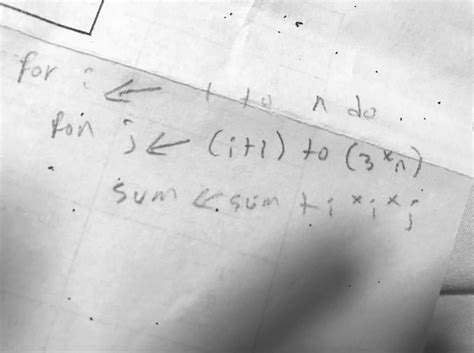 for i ← 1 to n do ..
for j ← (i+1) to (3*n)
sum ← sum + i * i * j